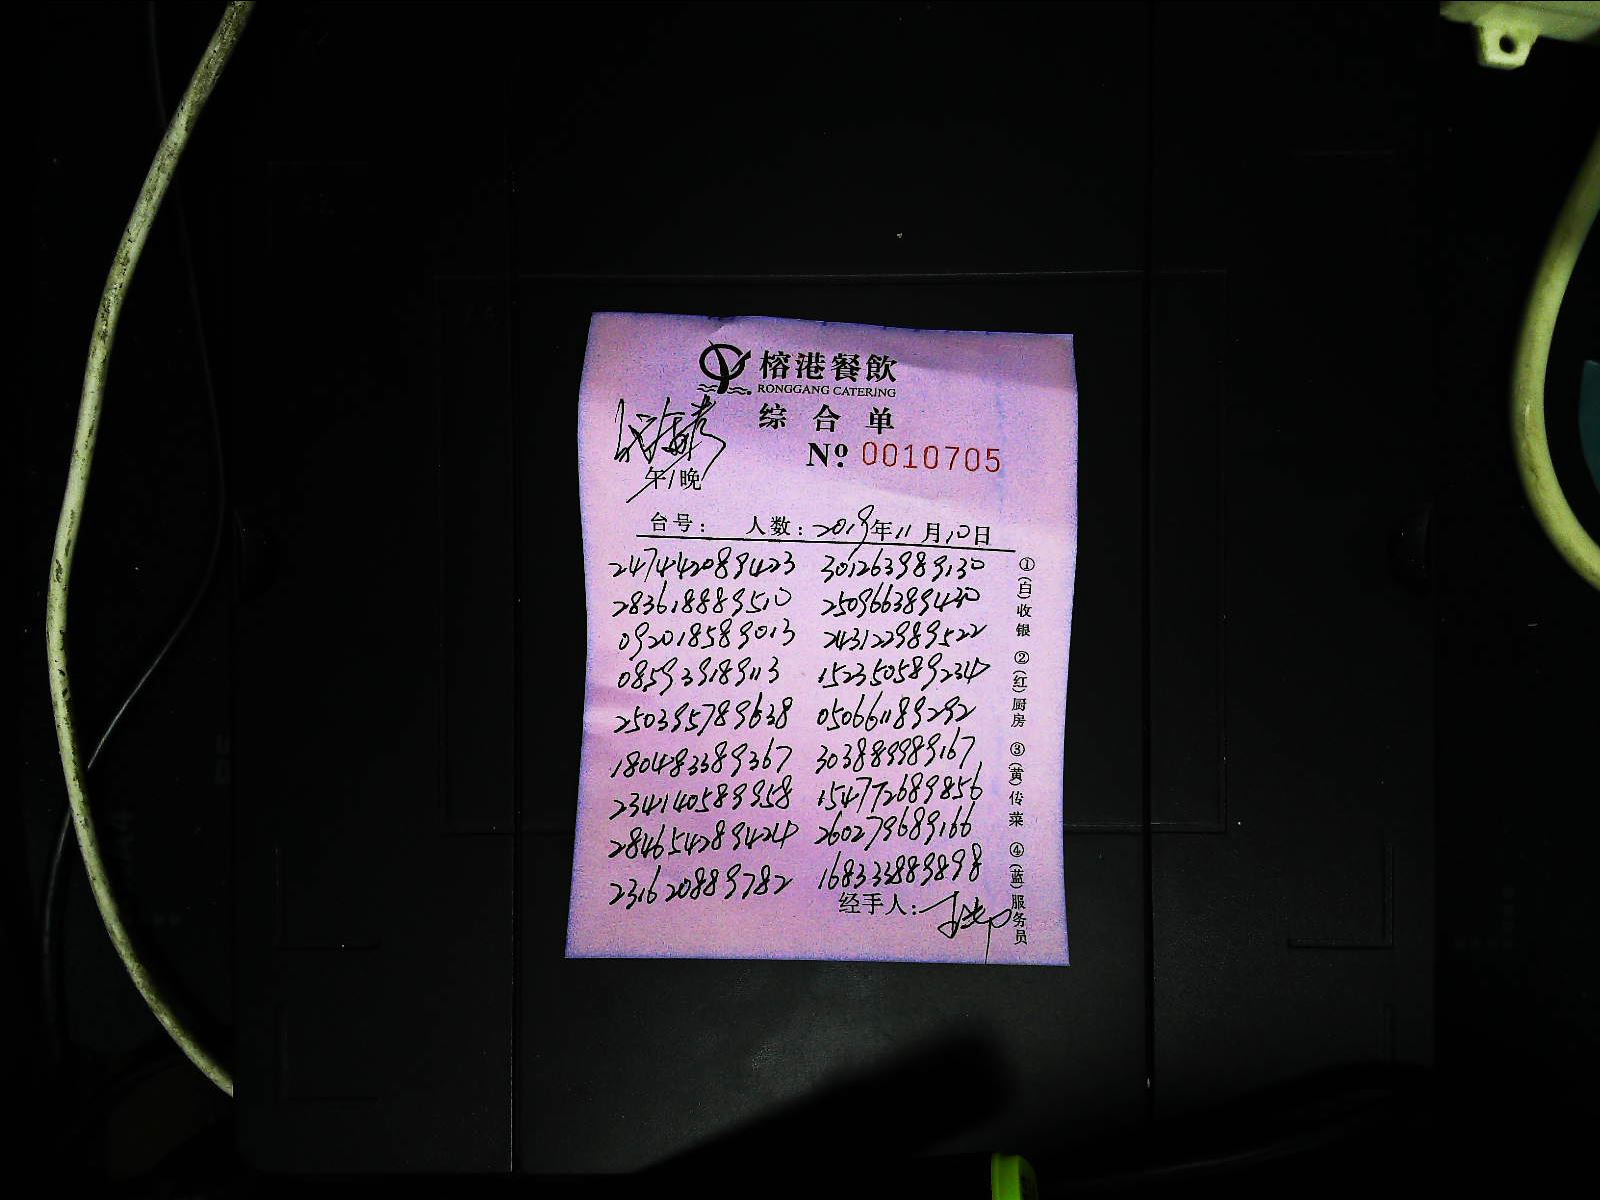 榕港餐飲
RONGGANG CATERING
综合单
№ 0010705
午/晚
台号： 人数：2019年11月10日
247442089423 301263989130
283618889510 250966389430
092018589013 243122989522
085939189113 152350589234
250395789638 050661189292
180483389367 303889989167
234140589958 154772689856
284654289424 260279689166
231620889782 168333889898
经手人：
①(白)收银 ②(红)厨房 ③(黄)传菜 ④(蓝)服务员